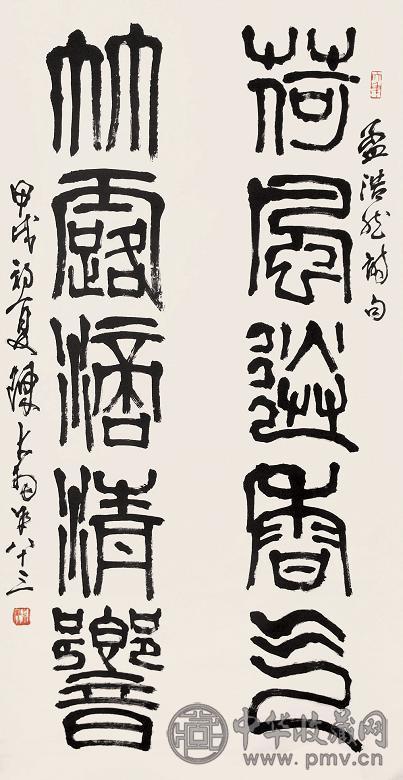 孟浩然詩句
荷風送香气
竹露滴清響
甲戌初夏陳大羽年八十三
中华收藏网
www.pmv.cn